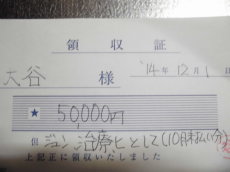 領収証
大谷 様 '14年12月1日
★ 50,000円
但 ジュン治療ヒとして(10月末払い分)
上記正に領収いたしました